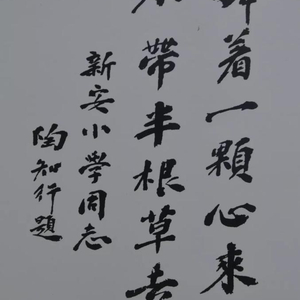 着一顆心來
帶半根草去
新安小学同志
陶知行題